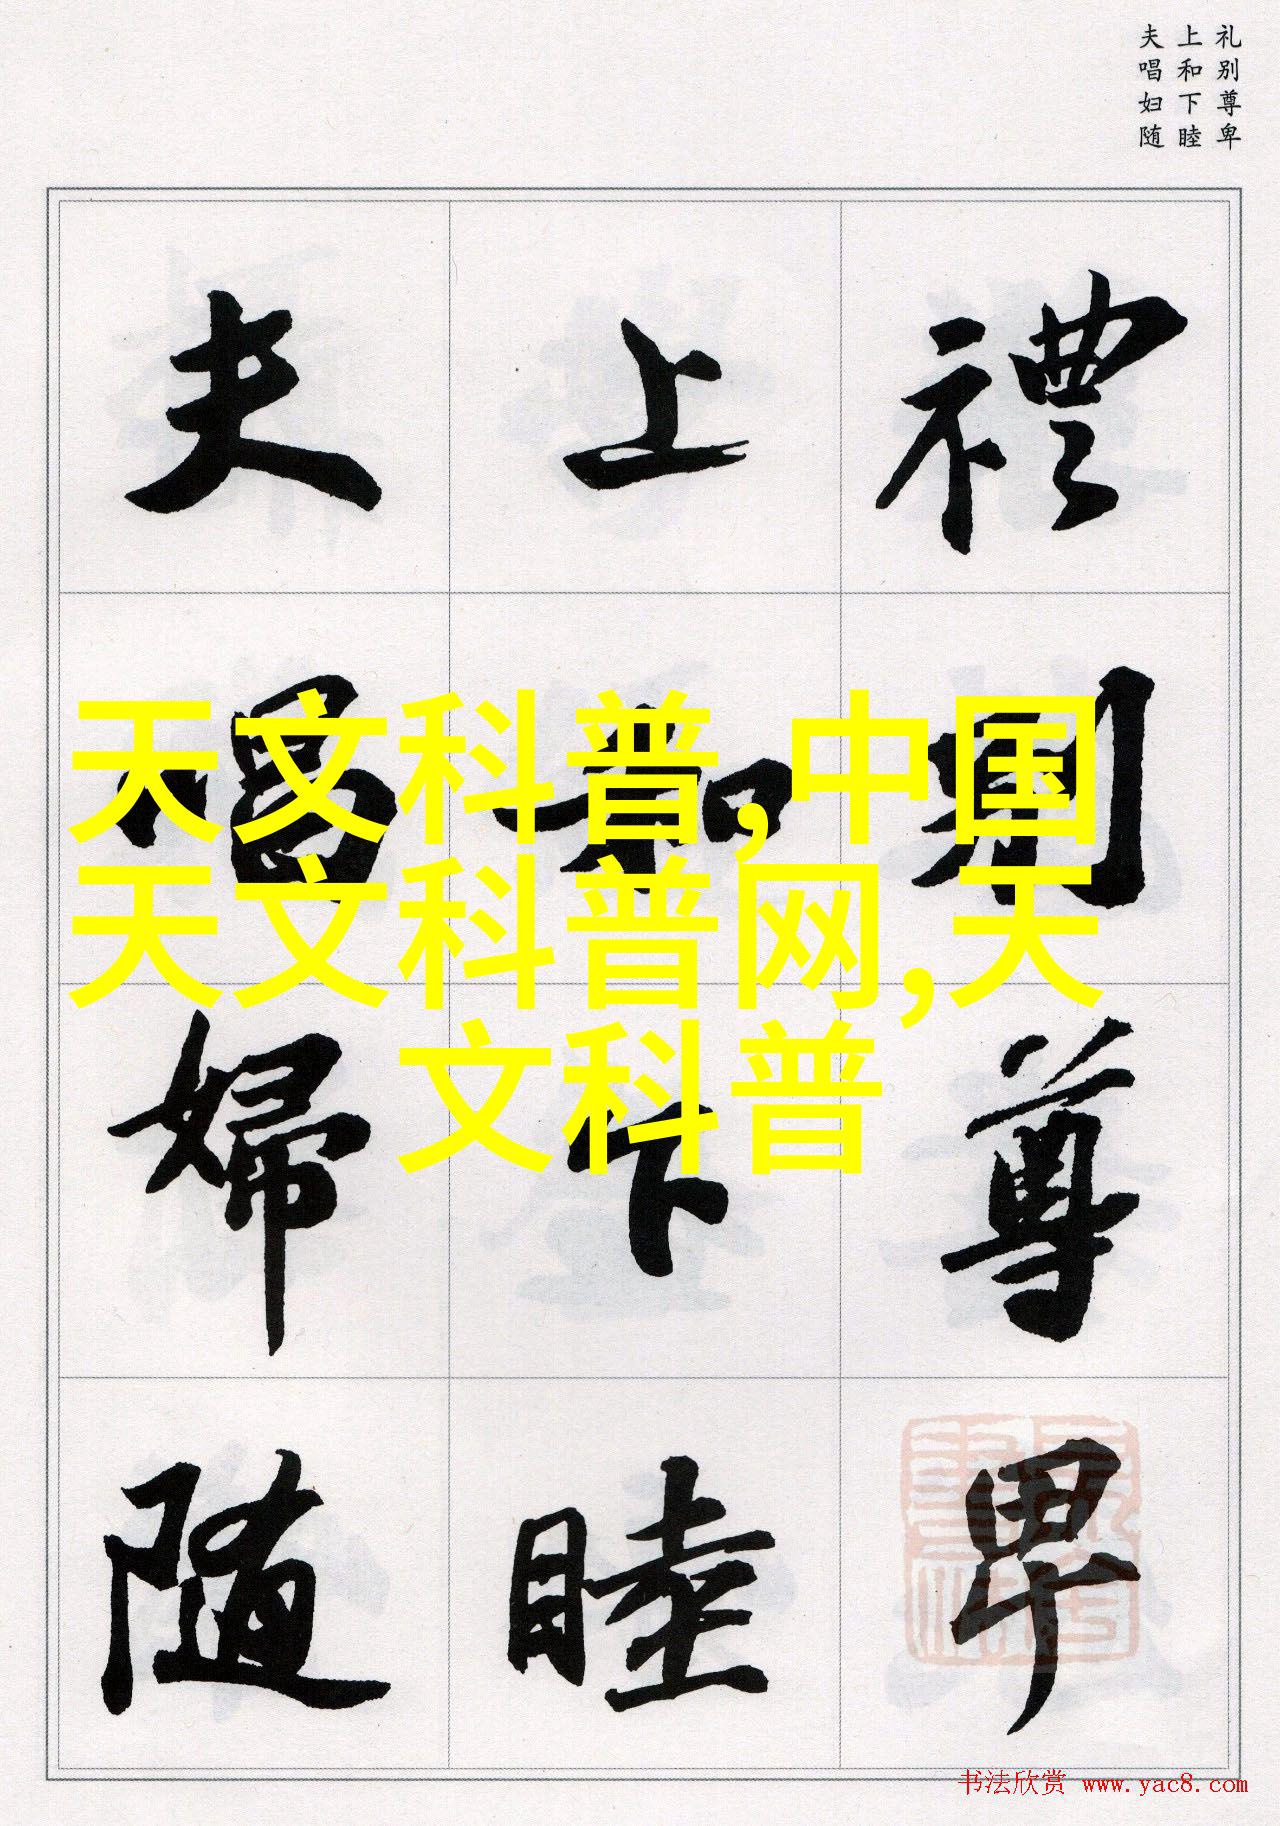 礼别尊卑
上和下睦
夫唱妇随
禮別尊卑
上和下睦
夫唱婦隨
天文科普,中国
天文科普网,天
文科普
书法欣赏 www.yac8.com